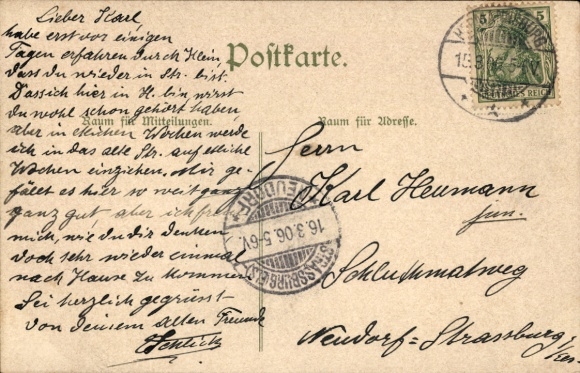 Lieber Karl
habe erst vor einigen
Tagen erfahren durch Klein,
dass du wieder in Str. bist.
Dass ich hier in H. bin, wirst
du wohl schon gehört haben,
aber in etlichen Wochen werde
ich in das alte Str. auf etliche
Wochen einziehen. Mir ge-
fällt es hier so weit ganz
ganz gut aber ich freue
mich, wie du dir denken
doch sehr wieder einmal
nach Hause zu kommen
Sei herzlich gegrüsst
von deinem alten Freunde
Postkarte.
Raum für Mitteilungen.
Raum für Adresse.
5 5
REICH
15.3.06
NEUDORF
16.3.06.5-6V.
STRASSBURG (ELS)
Herrn
Karl Heumann
jun.
Neudorf=Strassburg i/
Els.